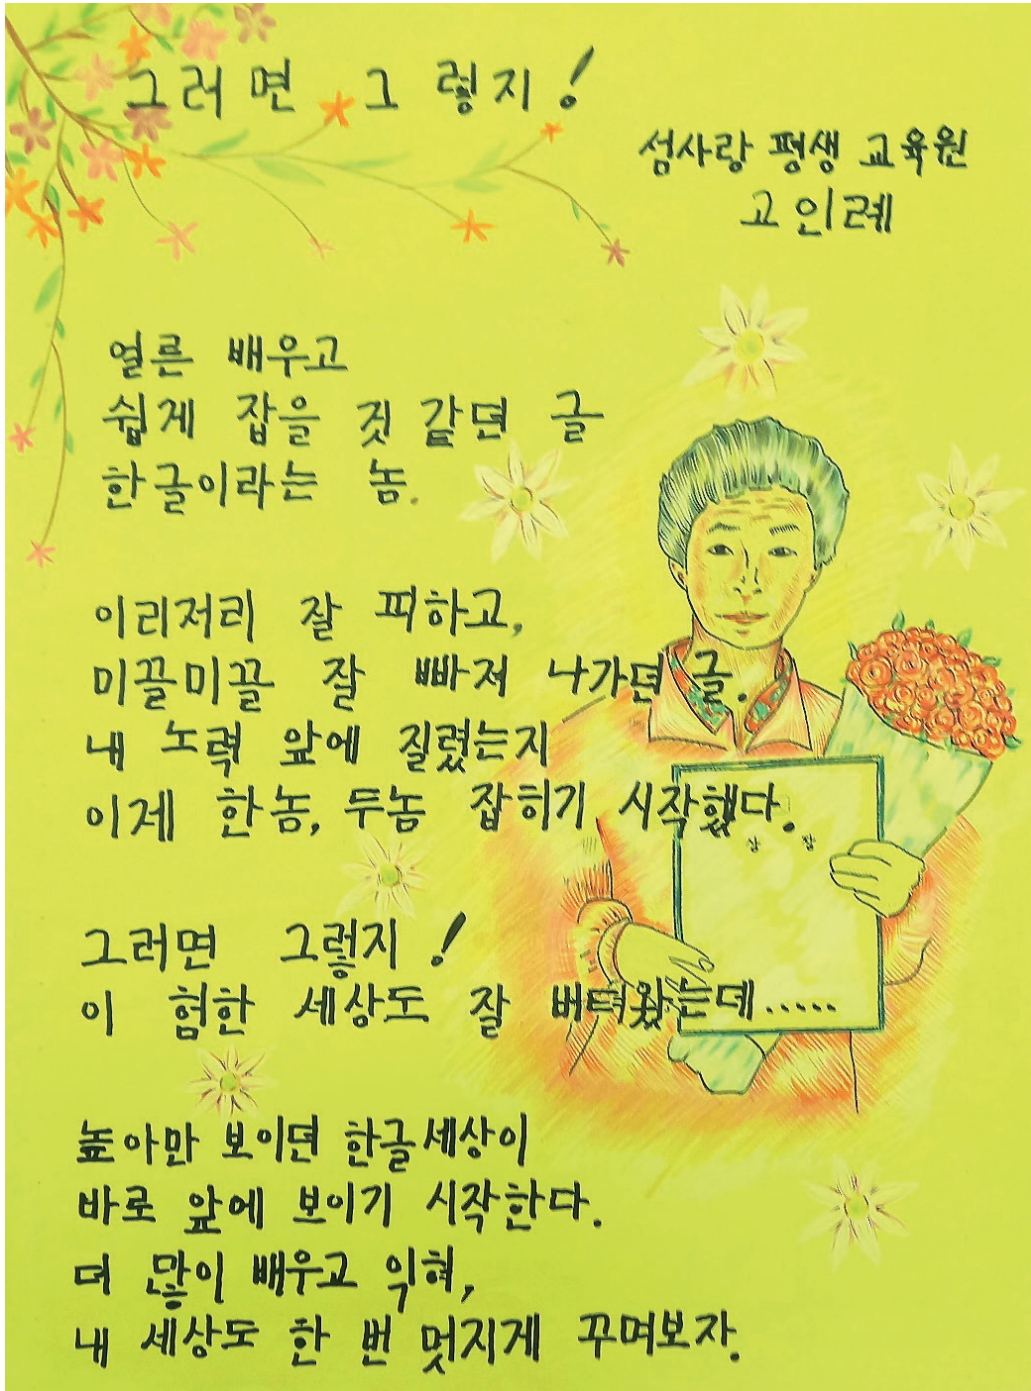 그러면 그렇지!
섬사랑 평생 교육원
고인례
얼른 배우고
쉽게 잡을 것 같던 글
한글이라는 놈.
이리저리 잘 피하고,
미끌미끌 잘 빠져 나가던 글.
내 노력 앞에 질렸는지
이제 한놈, 두놈 잡히기 시작했다.
상 장
그러면 그렇지!
이 험한 세상도 잘 버텨왔는데.....
높아만 보이던 한글세상이
바로 앞에 보이기 시작한다.
더 많이 배우고 익혀,
내 세상도 한 번 멋지게 꾸며보자.